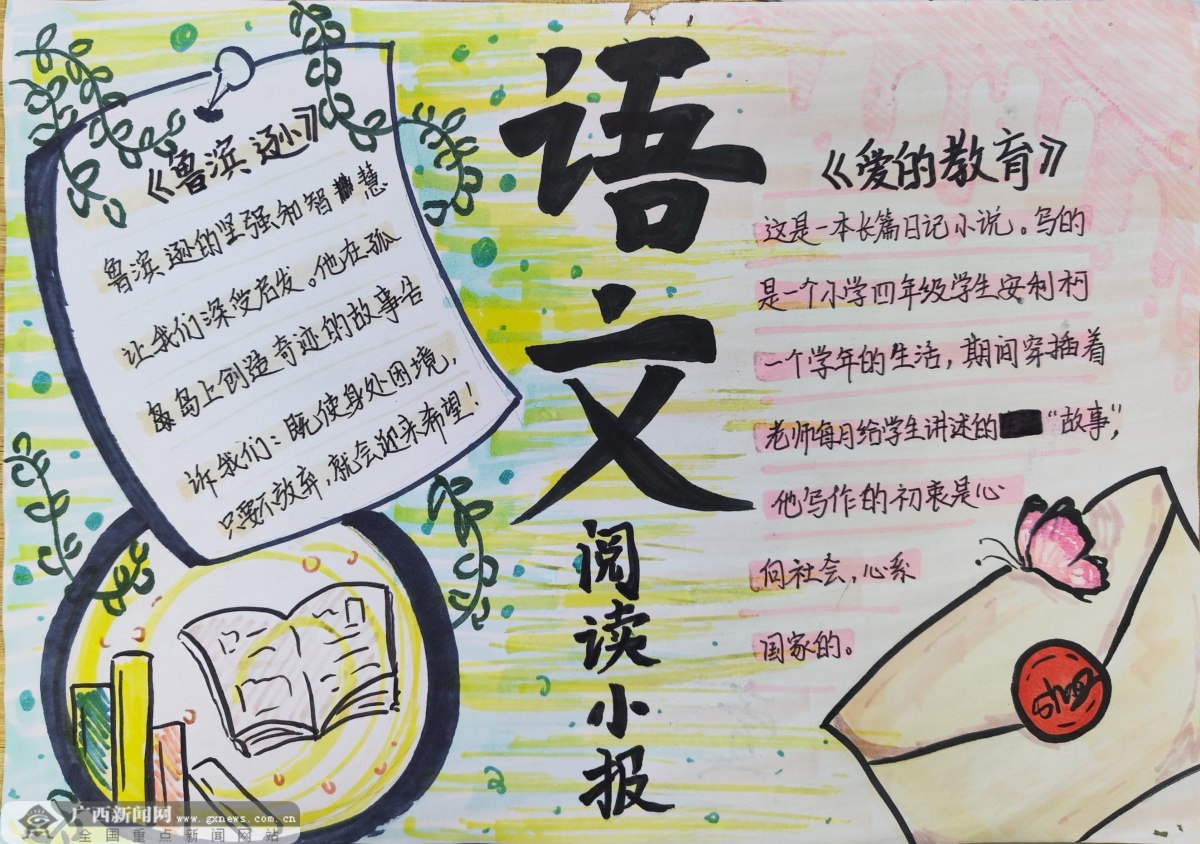 《鲁滨逊》
鲁滨逊的坚强和智慧
让我们深受启发。他在孤
岛上创造奇迹的故事告
诉我们：既使身处困境，
只要不放弃，就会迎来希望！
语文
阅读小报
《爱的教育》
这是一本长篇日记小说。写的
是一个小学四年级学生安利柯
一个学年的生活，期间穿插着
老师每月给学生讲述的“故事”，
他写作的初衷是心
向社会，心系
国家的。
广西新闻网 www.gxnews.com.cn
全国重点新闻网站